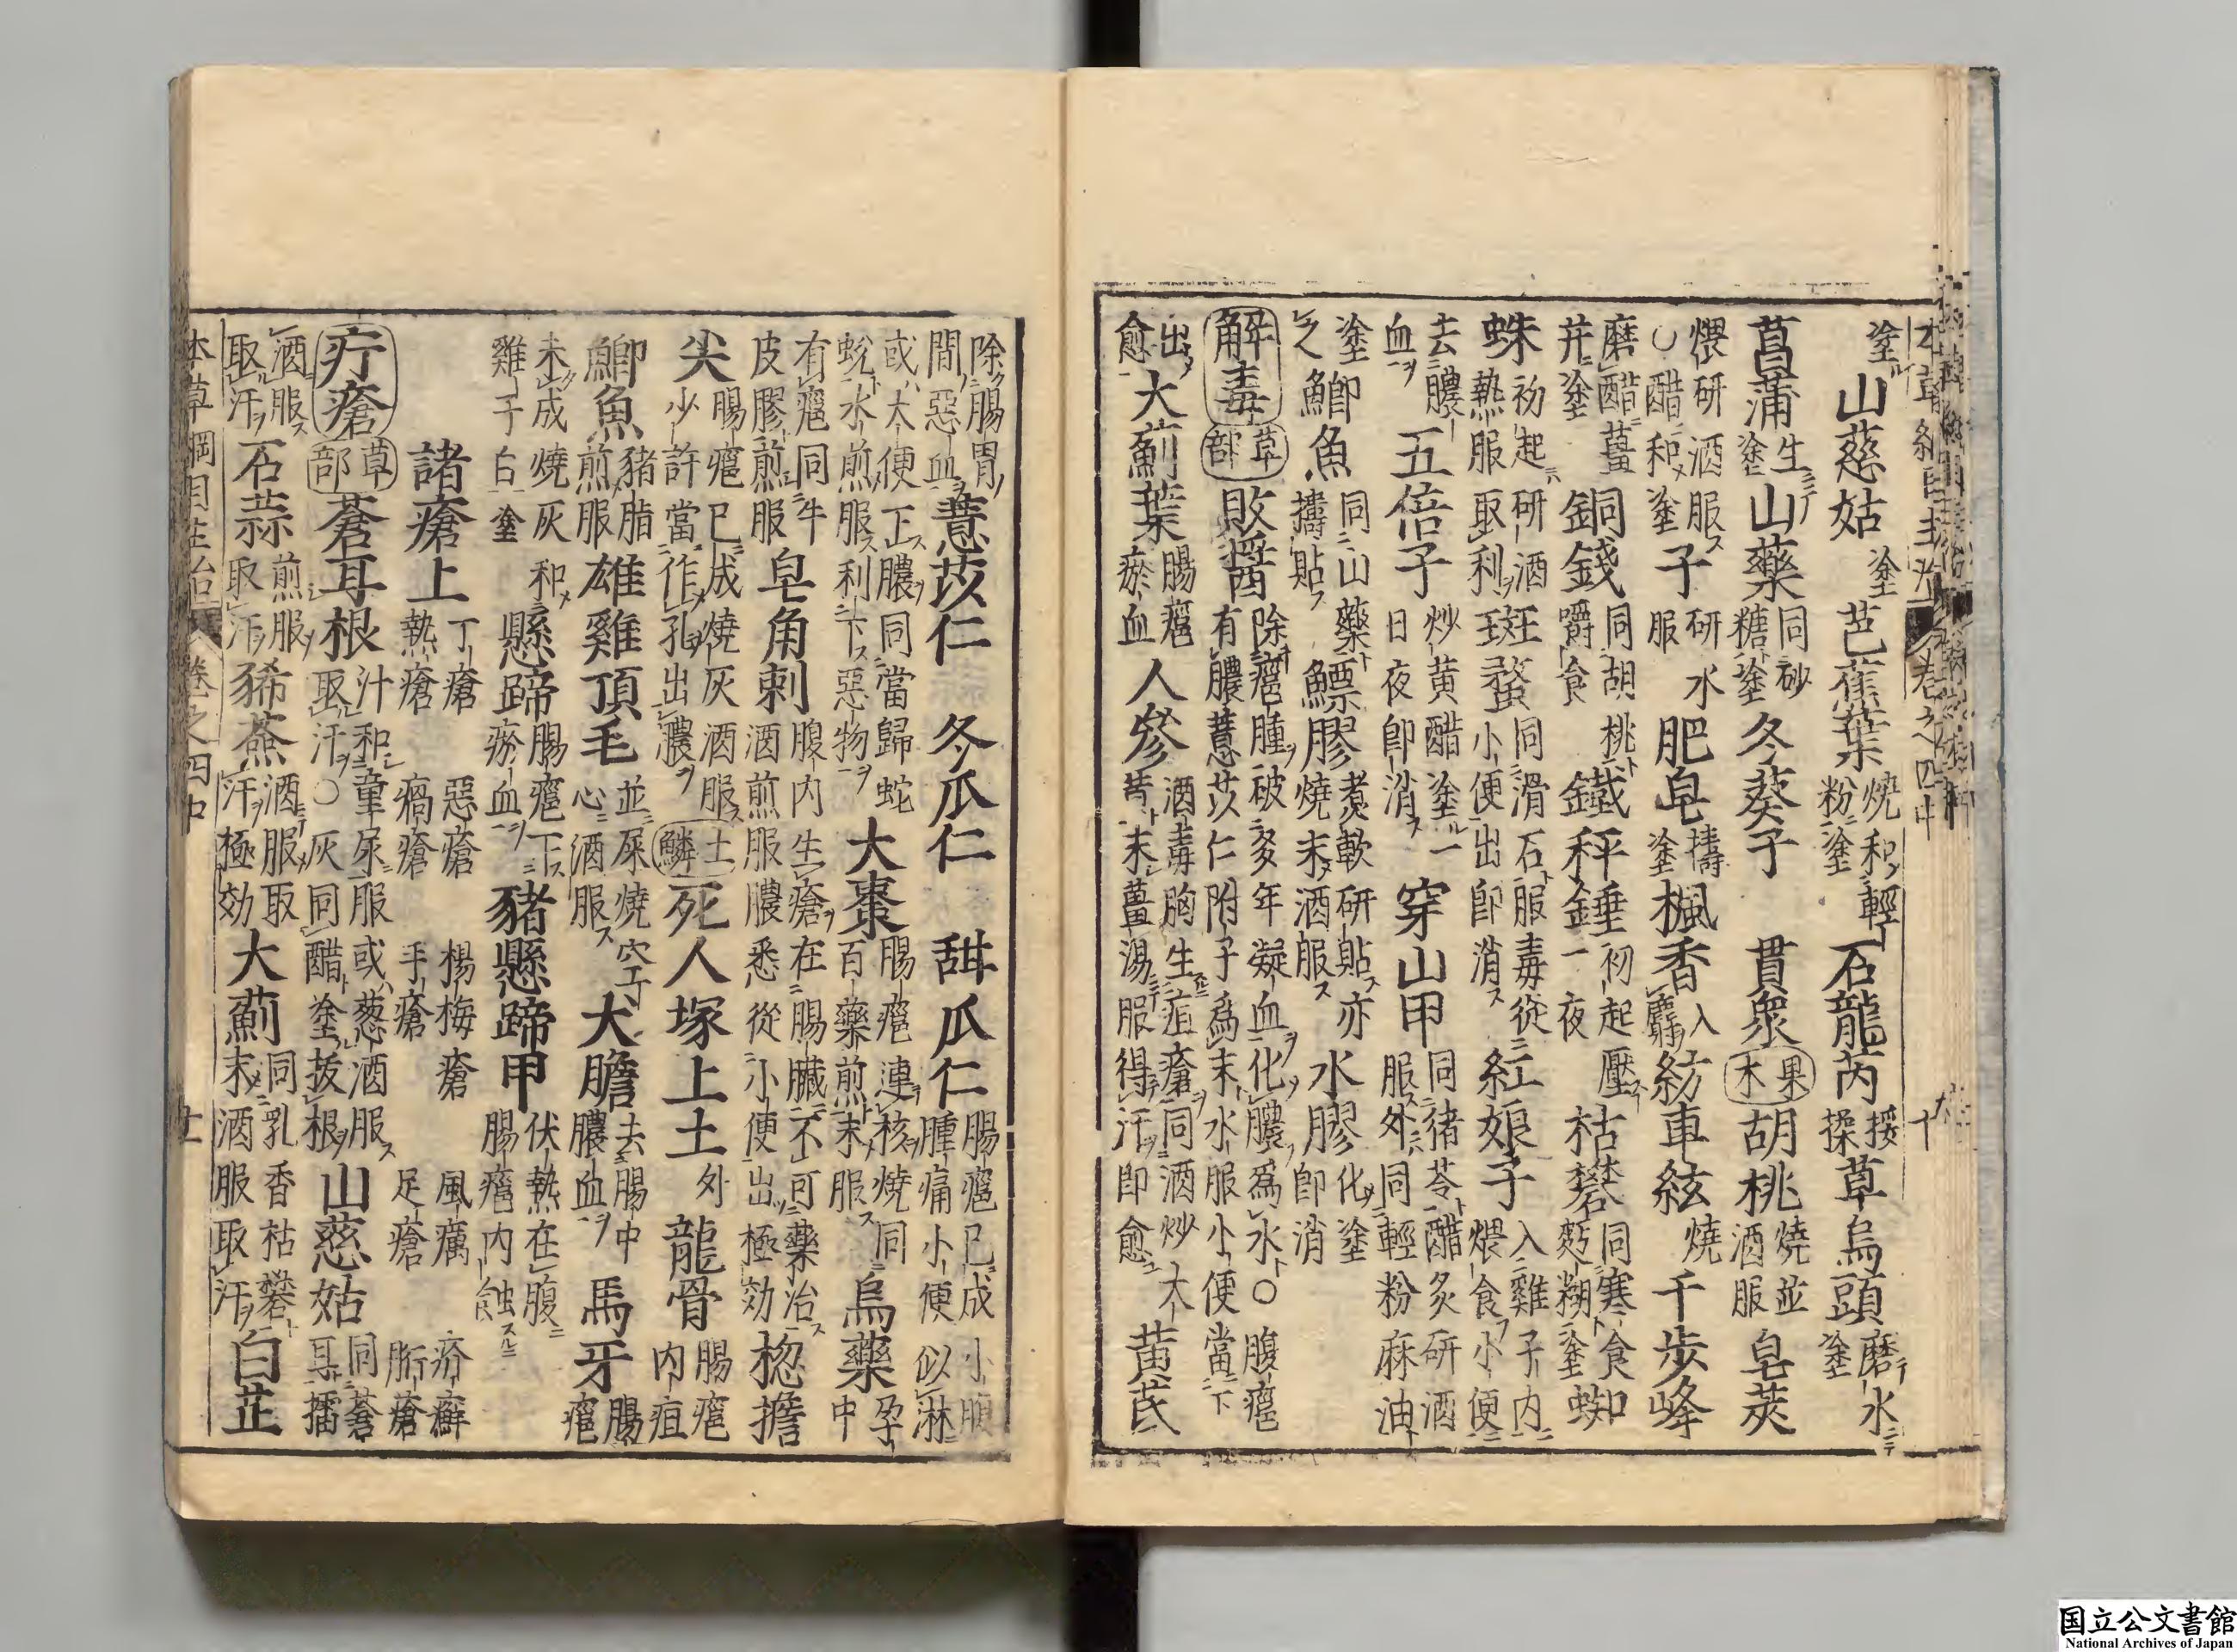 本草綱目主治 卷之四中 十
塗 山慈姑 塗 芭蕉葉 燒和輕粉塗 石龍芮 挼揉 草烏頭 磨水塗
菖蒲 生塗 山藥 同砂糖塗 冬葵子 貫衆 果木 胡桃 燒並酒服 皂莢
煨研酒服○醋和塗 子 研水服 肥皂 擣塗 楓香 入麝 紡車絃 燒 千步峰
磨醋并塗 薑 銅錢 同胡桃嚼食 鐵秤錘 初起一夜壓 枯礬 同寒食麪糊塗 蜘
蛛 初起熱服 研酒取利 斑蝥 同滑石服毒從小便出即消 紅娘子 入雞子内煨食小便
去膿血 五倍子 炒黃醋塗一日夜即消 穿山甲 同猪苓醋炙研酒服外同輕粉麻油
塗之 鯽魚 同山藥擣貼 鰾膠 煮軟研貼亦燒末酒服 水膠 化塗即消
解毒 草部 敗醬 除癰腫破多年凝血化膿爲水○腹癰有膿薏苡仁附子爲末水服小便當下
出愈 大薊葉 腸癰瘀血 人參 酒毒胸生疽瘡同酒炒大黃末薑湯服得汗即愈 黃芪
除腸胃間惡血 薏苡仁 冬瓜仁 甜瓜仁 腸癰已成小腹腫痛小便似淋
或大便下膿同當歸蛇蛻水煎服利下惡物 大棗 腸癰連核燒同百藥煎末服 烏藥 孕中
有癰同牛皮膠煎服 皂角刺 腹内生瘡在腸臟不可藥治酒煎服膿悉從小便出極効 楤擔
尖 腸癰已成燒灰酒服少許當作孔出膿 土鱗 死人塚上土 外 龍骨 腸癰内疽
鯽魚 豬脂煎服 雄雞頂毛 並屎燒空心酒服 犬膽 去腸中膿血 馬牙 腸癰
未成燒灰和雞子白塗 懸蹄 腸癰下瘀血 豬懸蹄甲 伏熱在腹腸癰内蝕
諸瘡上 丁瘡 惡瘡 楊梅瘡 風癘 疥癬 熱瘡 瘑瘡 手瘡 足瘡 䯒瘡
疔瘡 草部 蒼耳根 汁和童尿服或葱酒服取汗○灰同醋塗拔根 山慈姑 同蒼耳擂
酒服取汗 石蒜 煎服取汗 豨薟 酒服取汗極効 大薊 同乳香枯礬末酒服取汗 白芷
本草綱目主治 卷之四中 十一
国立公文書館
National Archives of Japan